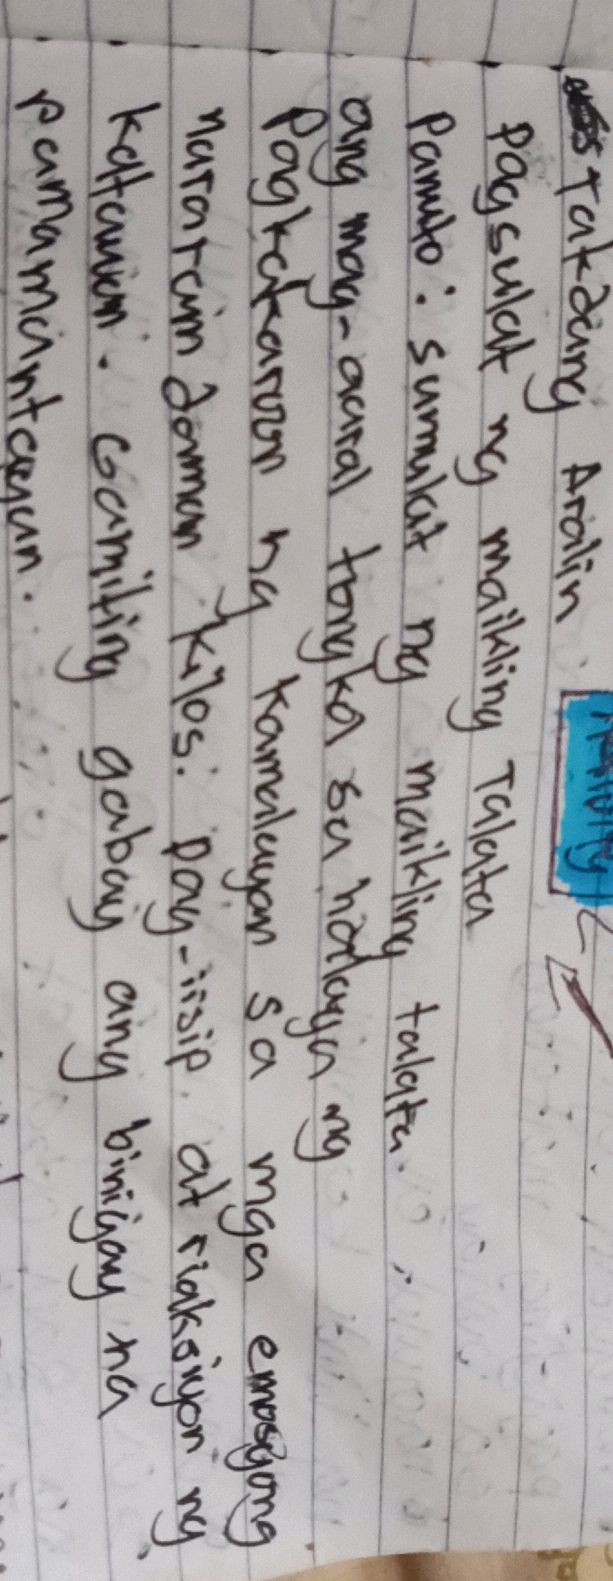 Takdang Aralin
Activity
Pagsulat ng maikling Talata
Panuto: sumulat ng maikling talata.
ang mag-aaral tongkol sa halaga ng
Pagkakaroon ng kamalayan sa mga emosyong
nararamdaman, kilos. pag-iisip at riaksiyon ng
katawan. Gamiting gabay ang binigay na
pamamantayan.